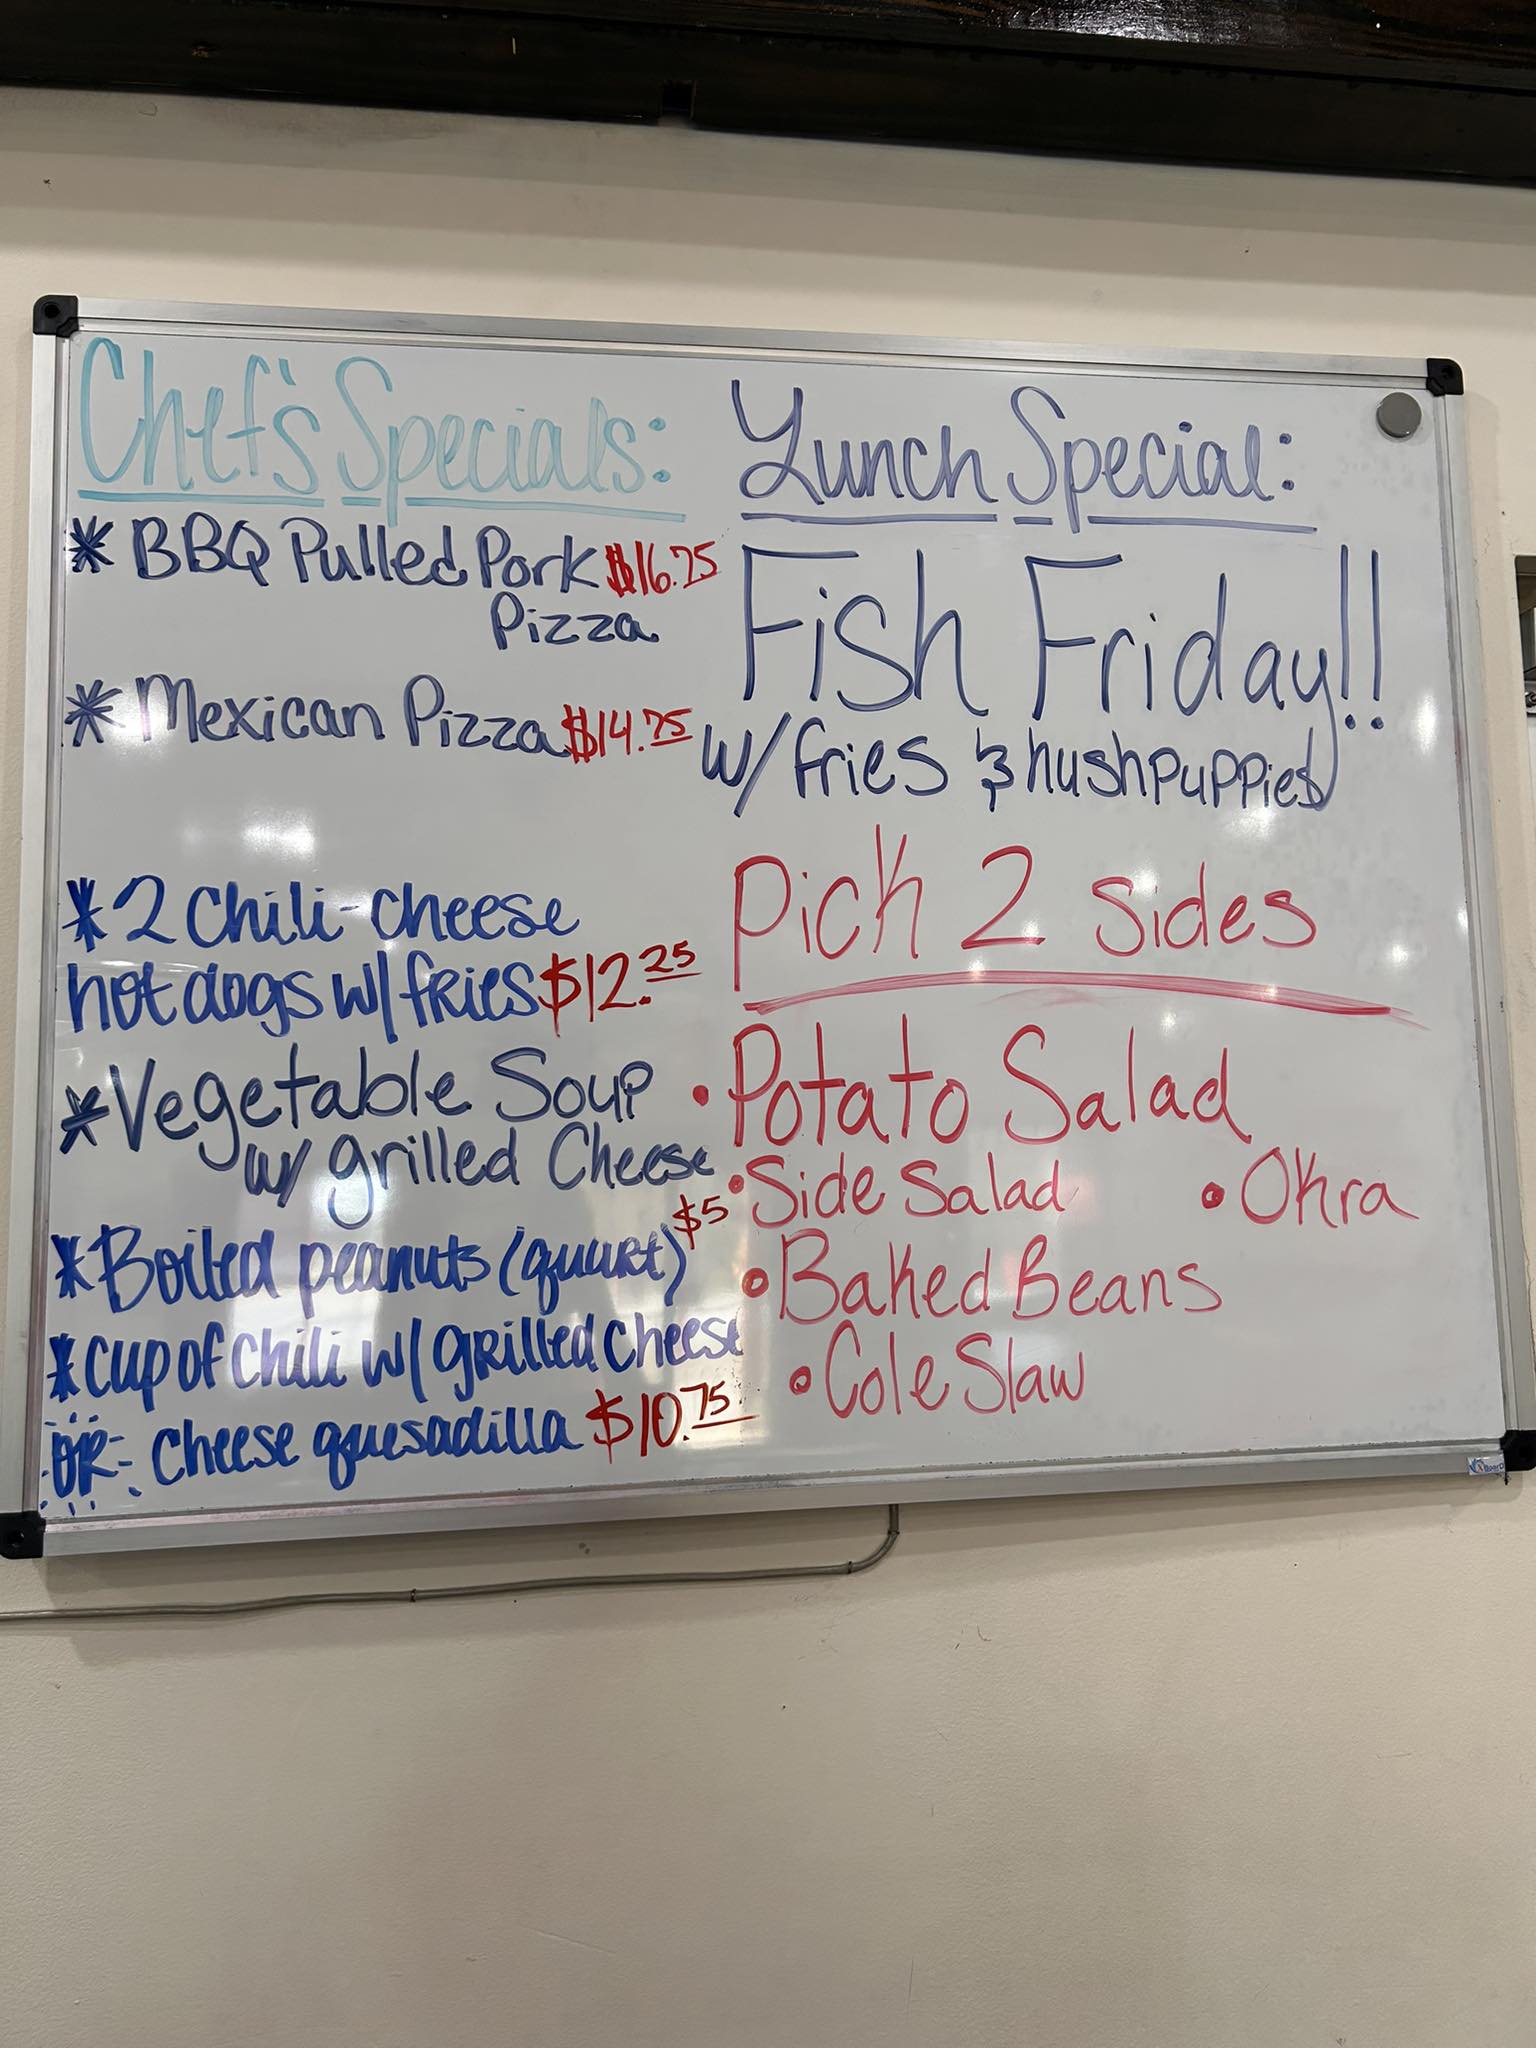 Chef's Specials:
* BBQ Pulled Pork $16.75
Pizza
* Mexican Pizza $14.75
* 2 chili-cheese
hot dogs w/ fries $12.25
* Vegetable Soup
w/ grilled Cheese
* Boiled peanuts (quart) $5
* cup of chili w/ grilled cheese
-OR- cheese quesadilla $10.75
Lunch Special:
Fish Friday!!
w/ fries & hushpuppies
Pick 2 sides
• Potato Salad
• Side Salad • Okra
• Baked Beans
• Cole Slaw